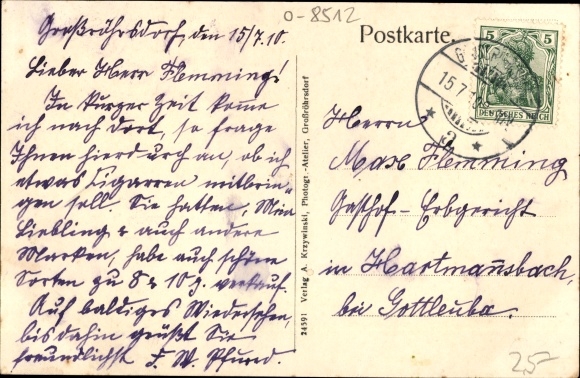 o-8512
Großröhrsdorf, den 15/7.10.
Lieber Herr Flemming!
In kurzer Zeit kome
ich nach dort, so frage
Ihnen hierdurch an, ob ich
etwas Cigarren mitbrin-
gen soll. Sie hatten, Mein
Liebling & auch andere
Marken, habe auch schöne
Sorten zu 8 & 10 ₰. verkauf.
Auf baldiges Wiedersehen,
bis dahin grüßt Sie
freundlichst F. W.
24591 Verlag A. Krzywinski, Photogr.-Atelier, Großröhrsdorf
Postkarte.
5 5
DEUTSCHES REICH
15.7.
Herrn
Max Flemming
Gasthof-Erbgericht
in Hartmannsbach,
bei Gottleuba.
2,5-